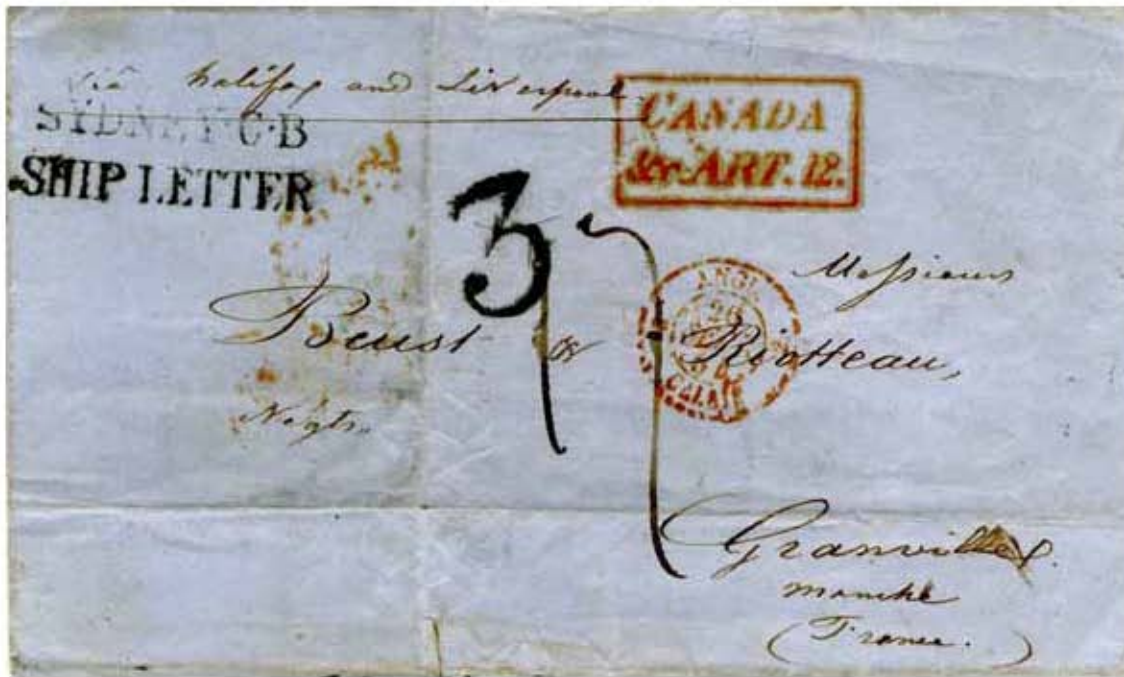 via halifax and Liverpool.
SYDNEY C·B
SHIP LETTER
CANADA
&c. ART. 12.
3
ANGL.
26
CALAIS
Messieurs
Beust & Riotteau,
Negts.
Granville.
manche
(France.)